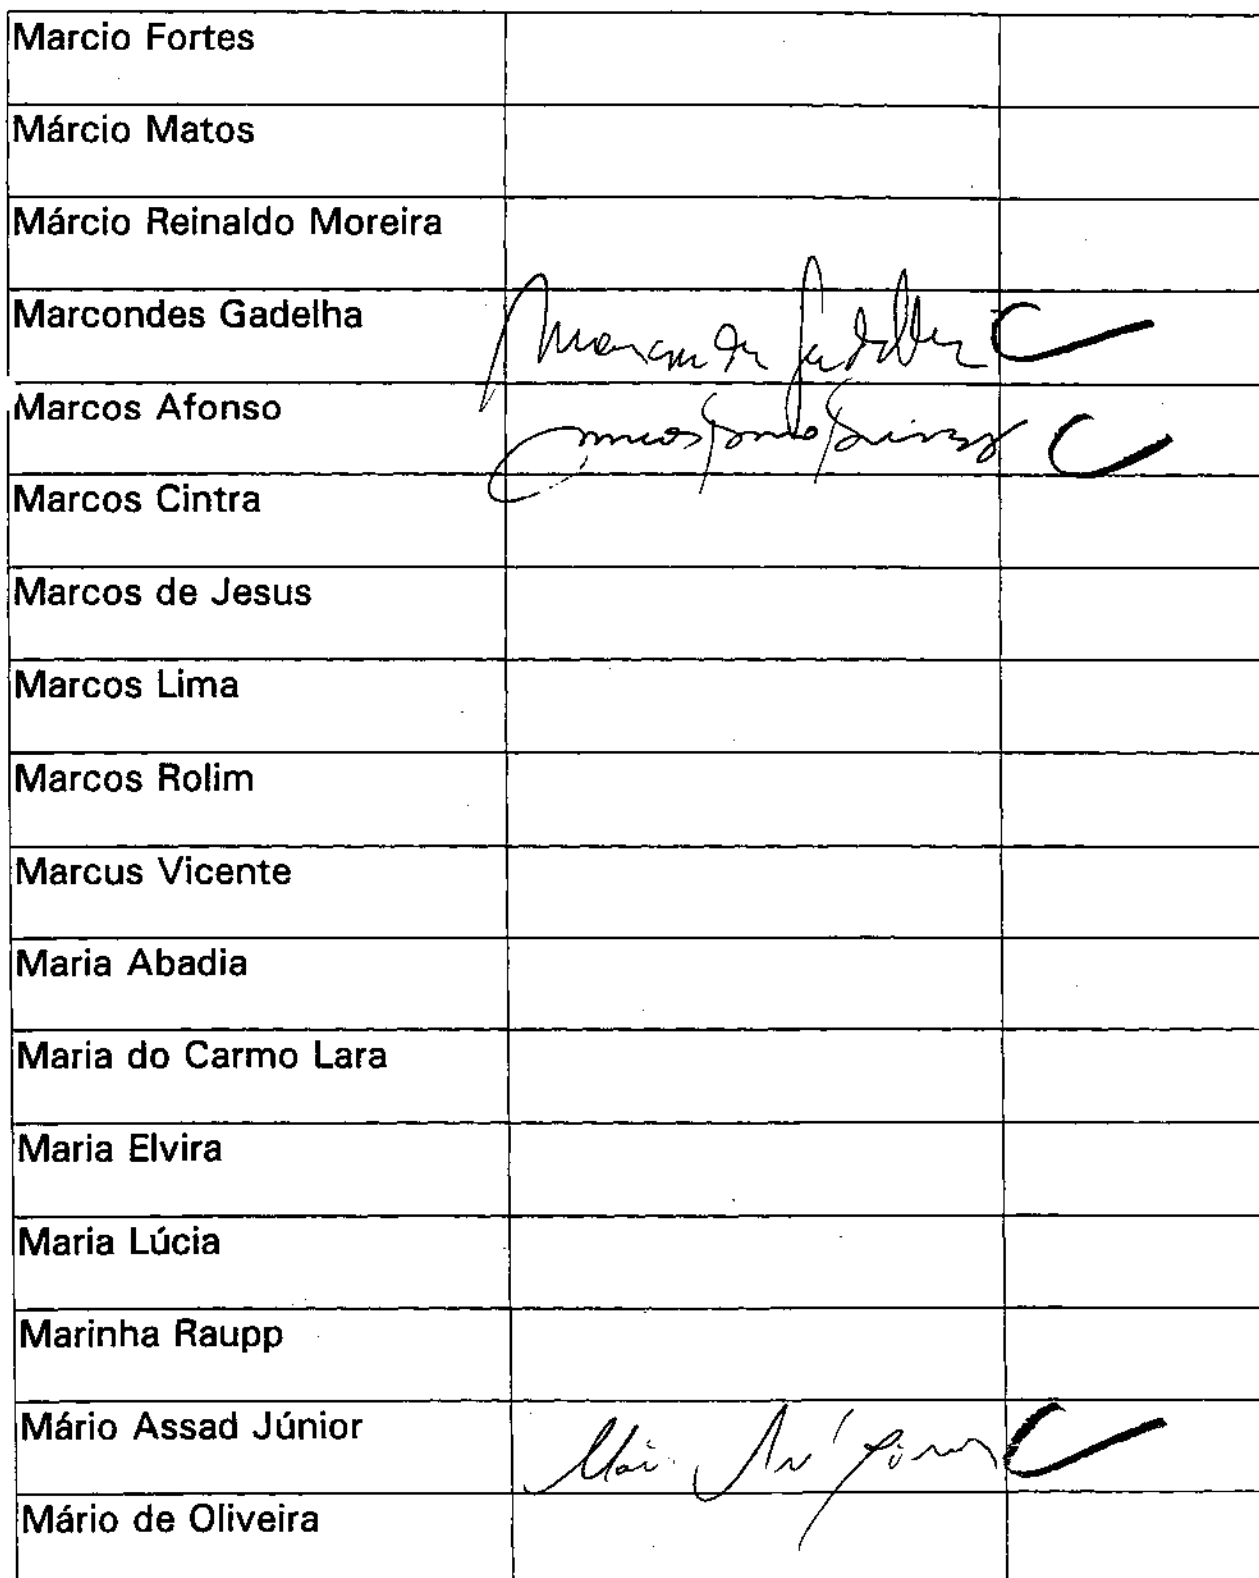 Marcio Fortes
Márcio Matos
Márcio Reinaldo Moreira
Marcondes Gadelha
Marcos Afonso
Marcos Cintra
Marcos de Jesus
Marcos Lima
Marcos Rolim
Marcus Vicente
Maria Abadia
Maria do Carmo Lara
Maria Elvira
Maria Lúcia
Marinha Raupp
Mário Assad Júnior
Mário de Oliveira